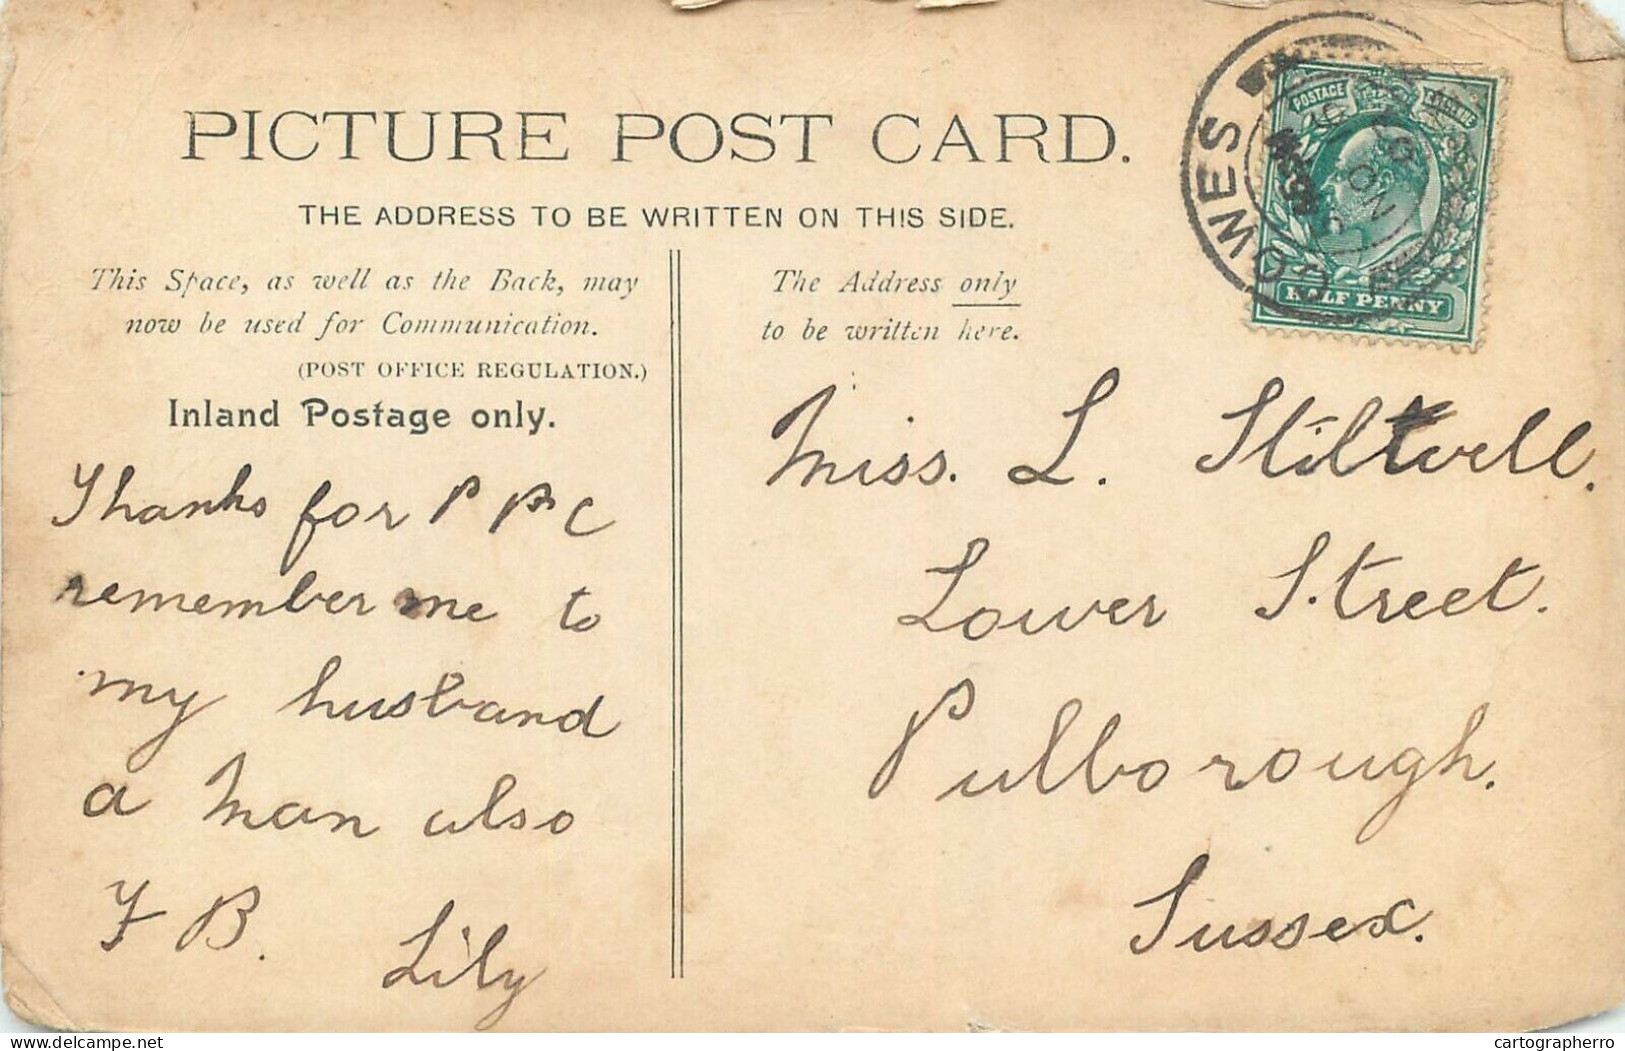 PICTURE POST CARD.
THE ADDRESS TO BE WRITTEN ON THIS SIDE.
This Space, as well as the Back, may
now be used for Communication.
(POST OFFICE REGULATION.)
Inland Postage only.
Thanks for P P C
remember me to
my husband
a man also
F B.
Lily
The Address only
to be written here.
Miss. L. Stiltwell.
Lower Street.
Pulborough.
Sussex.
COWES
POSTAGE
HALF PENNY
cartographerro